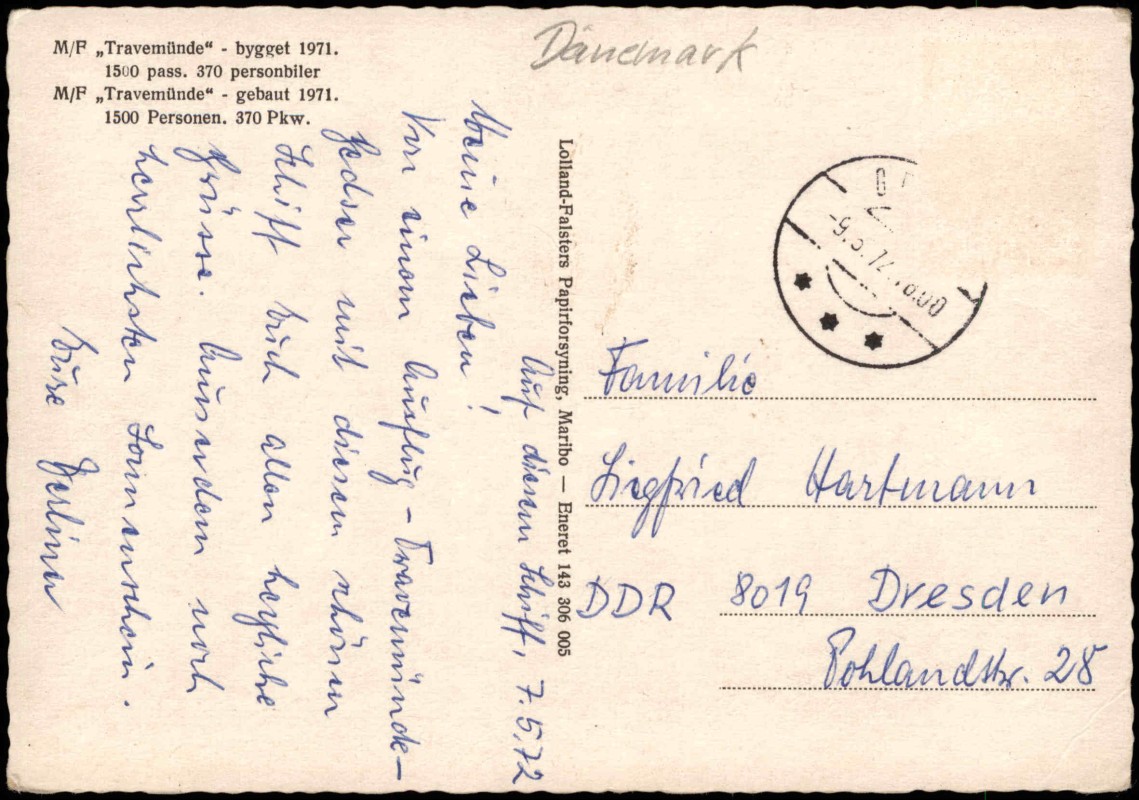 M/F „Travemünde“ - bygget 1971.
1500 pass. 370 personbiler
M/F „Travemünde“ - gebaut 1971.
1500 Personen. 370 Pkw.
Dänemark
Auf diesem Schiff, 7.5.72
Meine Lieben!
Von einem Ausflug - Travemünde-
Gedser mit diesem schönen
Schiff Euch allen herzliche
Grüsse. Ausserdem noch
herrlichsten Sonnenschein.
Eure Berliner
Lolland-Falsters Papirforsyning, Maribo — Eneret 143 306 005
Familie
Siegfried Hartmann
DDR 8019 Dresden
Pohlandstr. 28